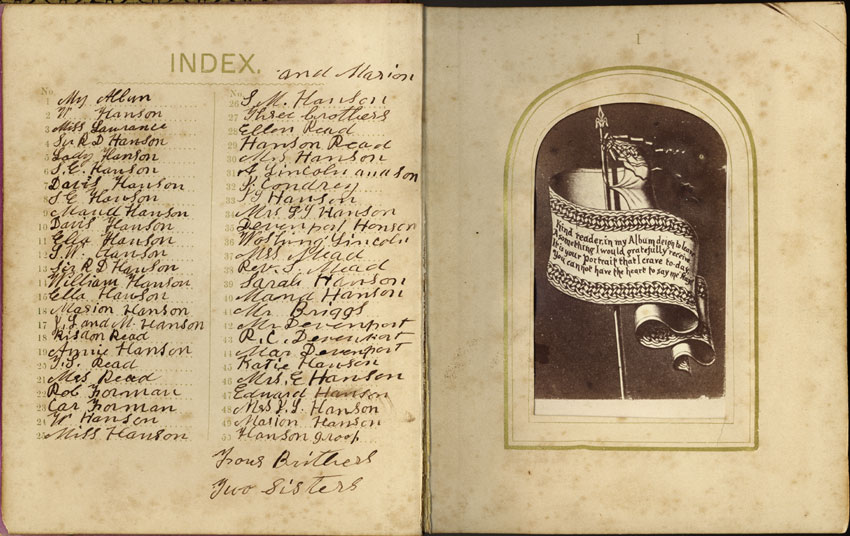 INDEX.
and Marion
No.
1 My Album
2 W Hanson
3 Miss Laurance
4 Sir R D Hanson
5 Lady Hanson
6 S.E. Hanson
7 Davis Hanson
8 S E Hanson
9 Maud Hanson
10 Davis Hanson
11 Ella Hanson
12 S.W. Hanson
13 Sir R D Hanson
14 William Hanson
15 Ella Hanson
16 Marion Hanson
17 and M. Hanson
18 Risdon Read
19 Annie Hanson
20 T.S. Read
21 Mrs Read
22 Rob Forman
23 Car Forman
24 W Hanson
25 Miss Hanson
No.
26 S. M. Hanson
27 Three brothers
28 Ellen Read
29 Hanson Read
30 Mrs Hanson
31 A Lincoln and son
32 S. Condrey
33 Hanson
34 Mrs Hanson
35 Devenport Hanson
36 Lincoln
37 Miss Mead
38 Rev. S. Mead
39 Sarah Hanson
40 Maud Hanson
41 Mr. Briggs
42 Mr Devenport
43 R. C. Devenport
44 Devenport
45 Katie Hanson
46 Mrs. E Hanson
47 Edward Hanson
48 Mrs Hanson
49 Marion Hanson
50 Hanson groop
Brithers
Two Sisters
1
Kind reader, in my Album deign to leave
A something I would gratefully receive
It is your Portrait that I crave to day
You can not have the heart to say me Nay.